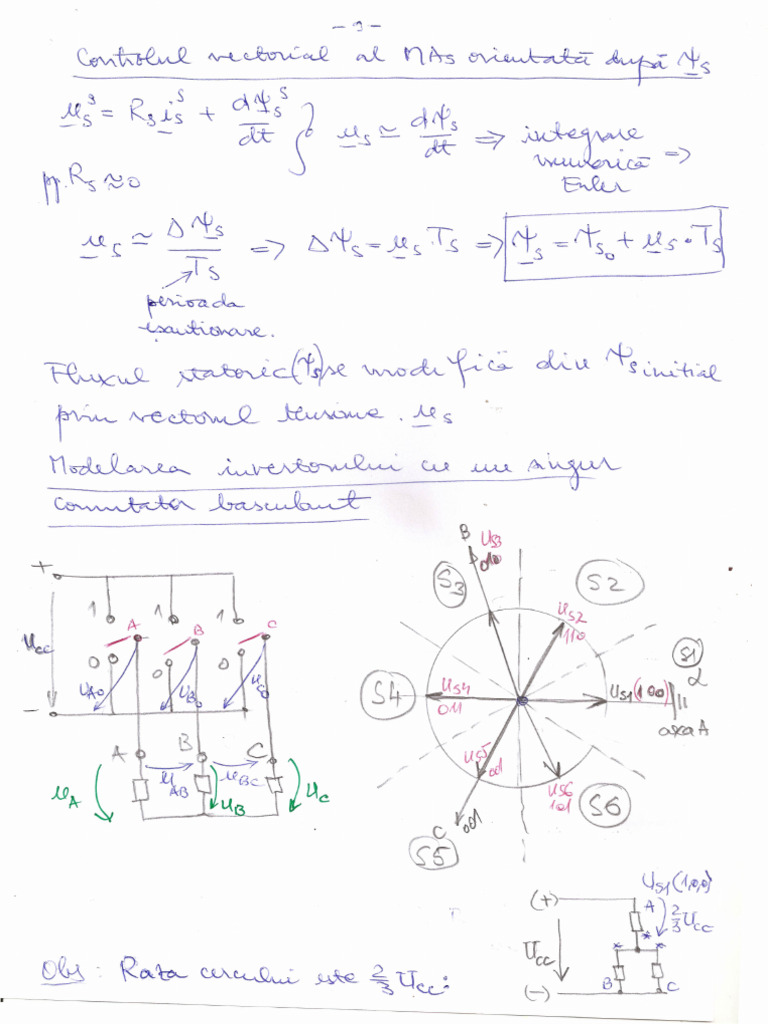 - 9 -
Controlul vectorial al MAs orientată după Ψs
us^s = Rs is^s + dΨs^s/dt } us ≃ dΨs/dt => integrare numerică Euler =>
pp. Rs ≈ 0
us ≃ ΔΨs/Ts => ΔΨs = us·Ts => Ψs = Ψs0 + us·Ts
perioada
esantionare.
Fluxul statoric (Ψs) se modifică din Ψs initial
prin vectorul tensiune. us
Modelarea invertorului cu un singur
comutator basculant
+
1 1 1
A B C
Ucc
0 0 0
UA0 UB0 UC0
-
A B C
UAB UBC
uA uB uC
B US3
010
S3
S2
US2
110
S1
α
US1 (100)
axa A
S4
US4
011
US5
001
C 001
S5
US6
101
S6
US1(1,0,0)
(+)
A
2/3 Ucc
Ucc
* * *
B C
(-)
Obs: Raza cercului este 2/3 Ucc: